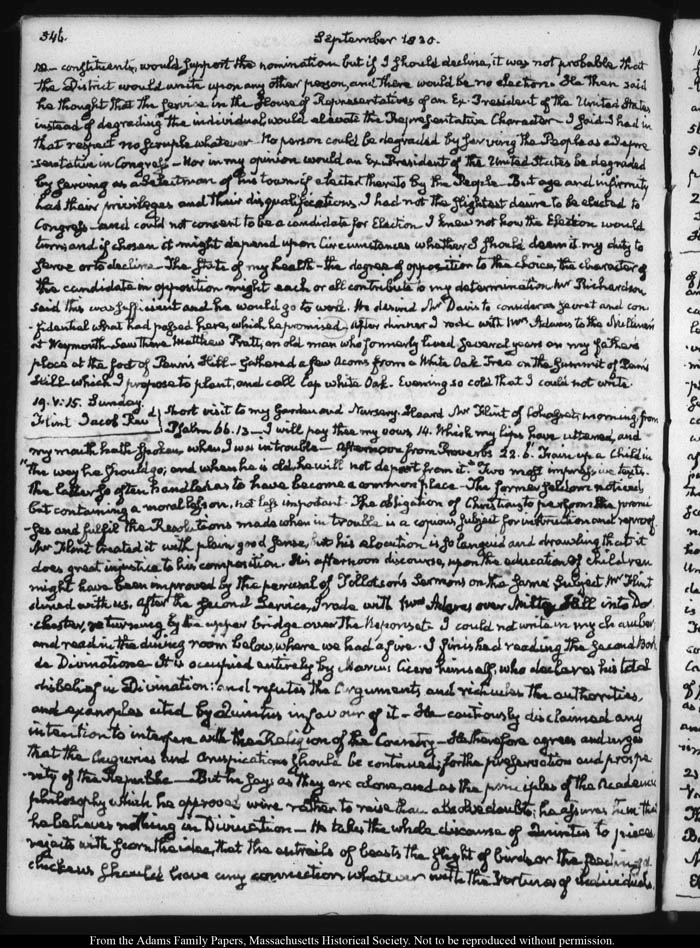 346.
September 1830.
constituents, would support the nomination but if I should decline, it was not probable that
the District would unite upon any other person, and there would be no election. He then said
he thought that the service in the House of Representatives of an Ex-President of the United States
instead of degrading the individual would elevate the Representative Character. I said I had in
that respect no scruple whatever. No person could be degraded by serving the People as a Repre
sentative in Congress. Nor in my opinion would an Ex-President of the United States be degraded
by serving as a Selectman of his town if elected thereto by the People. But age and infirmity
had their privileges and their disqualifications. I had not the slightest desire to be elected to
Congress, and could not consent to be a candidate for Election. I knew not how the Election would
turn, and if chosen it might depend upon circumstances whether I should deem it my duty to
serve or to decline. The state of my health—the degree of opposition to the choice, the character of
the candidate in opposition might each or all contribute to my determination. Mr Richardson
said this was sufficient and he would go to work. He desired Mr Davis to consider as secret and con
fidential what had passed here, which he promised. After dinner I rode with Mrs Adams to the
at Weymouth. Saw there Matthew Pratt, an old man who formerly lived several years on my father's
place at the foot of Penn's Hill—Gathered a few Acorns from a White Oak Tree on the summit of Penn's
Hill—which I propose to plant, and call Cap white Oak. Evening so cold that I could not write.
19. V:15. Sunday.
Flint Jacob Rev
Short visit to my Garden and Nursery. Heard Mr Flint of Cohasset; morning, from
Psalm 66. 13—I will pay thee my vows, 14. Which my lips have uttered, and
my mouth hath spoken, when I was in trouble—Afternoon from Proverbs 22. 6. Train up a Child in
the way he should go; and when he is old, he will not depart from it." Two most impressive texts.
The latter so often handled as to have become a common place—The former seldom noticed,
but containing a moral lesson, not less important. The obligation of Christians to perform the promi
ses and fulfil the Resolutions made when in trouble is a copious subject for instruction and reproof.
Mr Flint treated it with plain good sense, but his elocution is so languid and drawling that it
does great injustice to his composition. His afternoon discourse, upon the education of children
might have been improved by the perusal of Tillotson's Sermons on the same subject. Mr Flint
dined with us. After the second Service, I rode with Mrs Adams over Milton Hill into Dor
chester, returning by the upper bridge over the Neponset. I could not write in my chamber
and read in the dining room below, where we had a fire. I finished reading the second Book
de Divinatione. It is occupied entirely by Marcus Cicero himself, who declares his total
disbelief in Divination; and refutes the Arguments, and ridicules the authorities,
and examples cited by Quintus in favour of it—He cautiously disclaimed any
intention to interfere with the Religion of the Country—He therefore agrees and urges
that the Auguries and Aruspications should be continued, for the preservation and prospe
rity of the Republic—But he says as they are alone, and as the principles of the Academic
philosophy which he approved were rather to raise than doubts, he assures him that
he believes nothing in Divination—He takes the whole discourse of Quintus to pieces
rejects with scorn the idea, that the entrails of beasts the flight of birds or the feeding of
chickens should have any connection whatever with the Fortunes of Individuals,
From the Adams Family Papers, Massachusetts Historical Society. Not to be reproduced without permission.